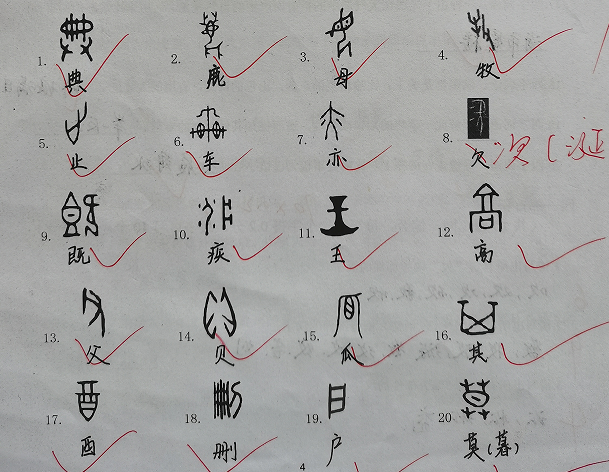 1. 典 2. 鹿 3. 母 4. 牧
5. 止 6. 车 7. 亦 8. 欠 次(涎
9. 既 10. 疾 11. 王 12. 高
13. 父 14. 贝 15. 瓜 16. 其
17. 酉 18. 删 19. 户 20. 莫(暮)